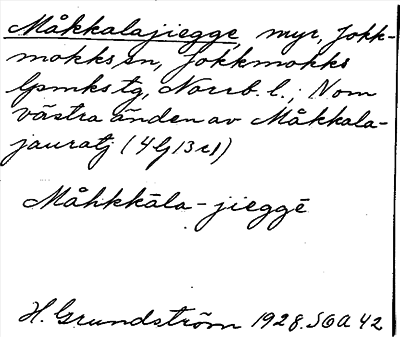 Måkkalajiegge, myr, Jokk-
mokks sn, Jokkmokks
lpmks tg, Norrb. l.; Nom
västra änden av Måkkala-
jauratj (4G13c1)
Måhkkāla-jieggē
H. Grundström 1928. SOA 42